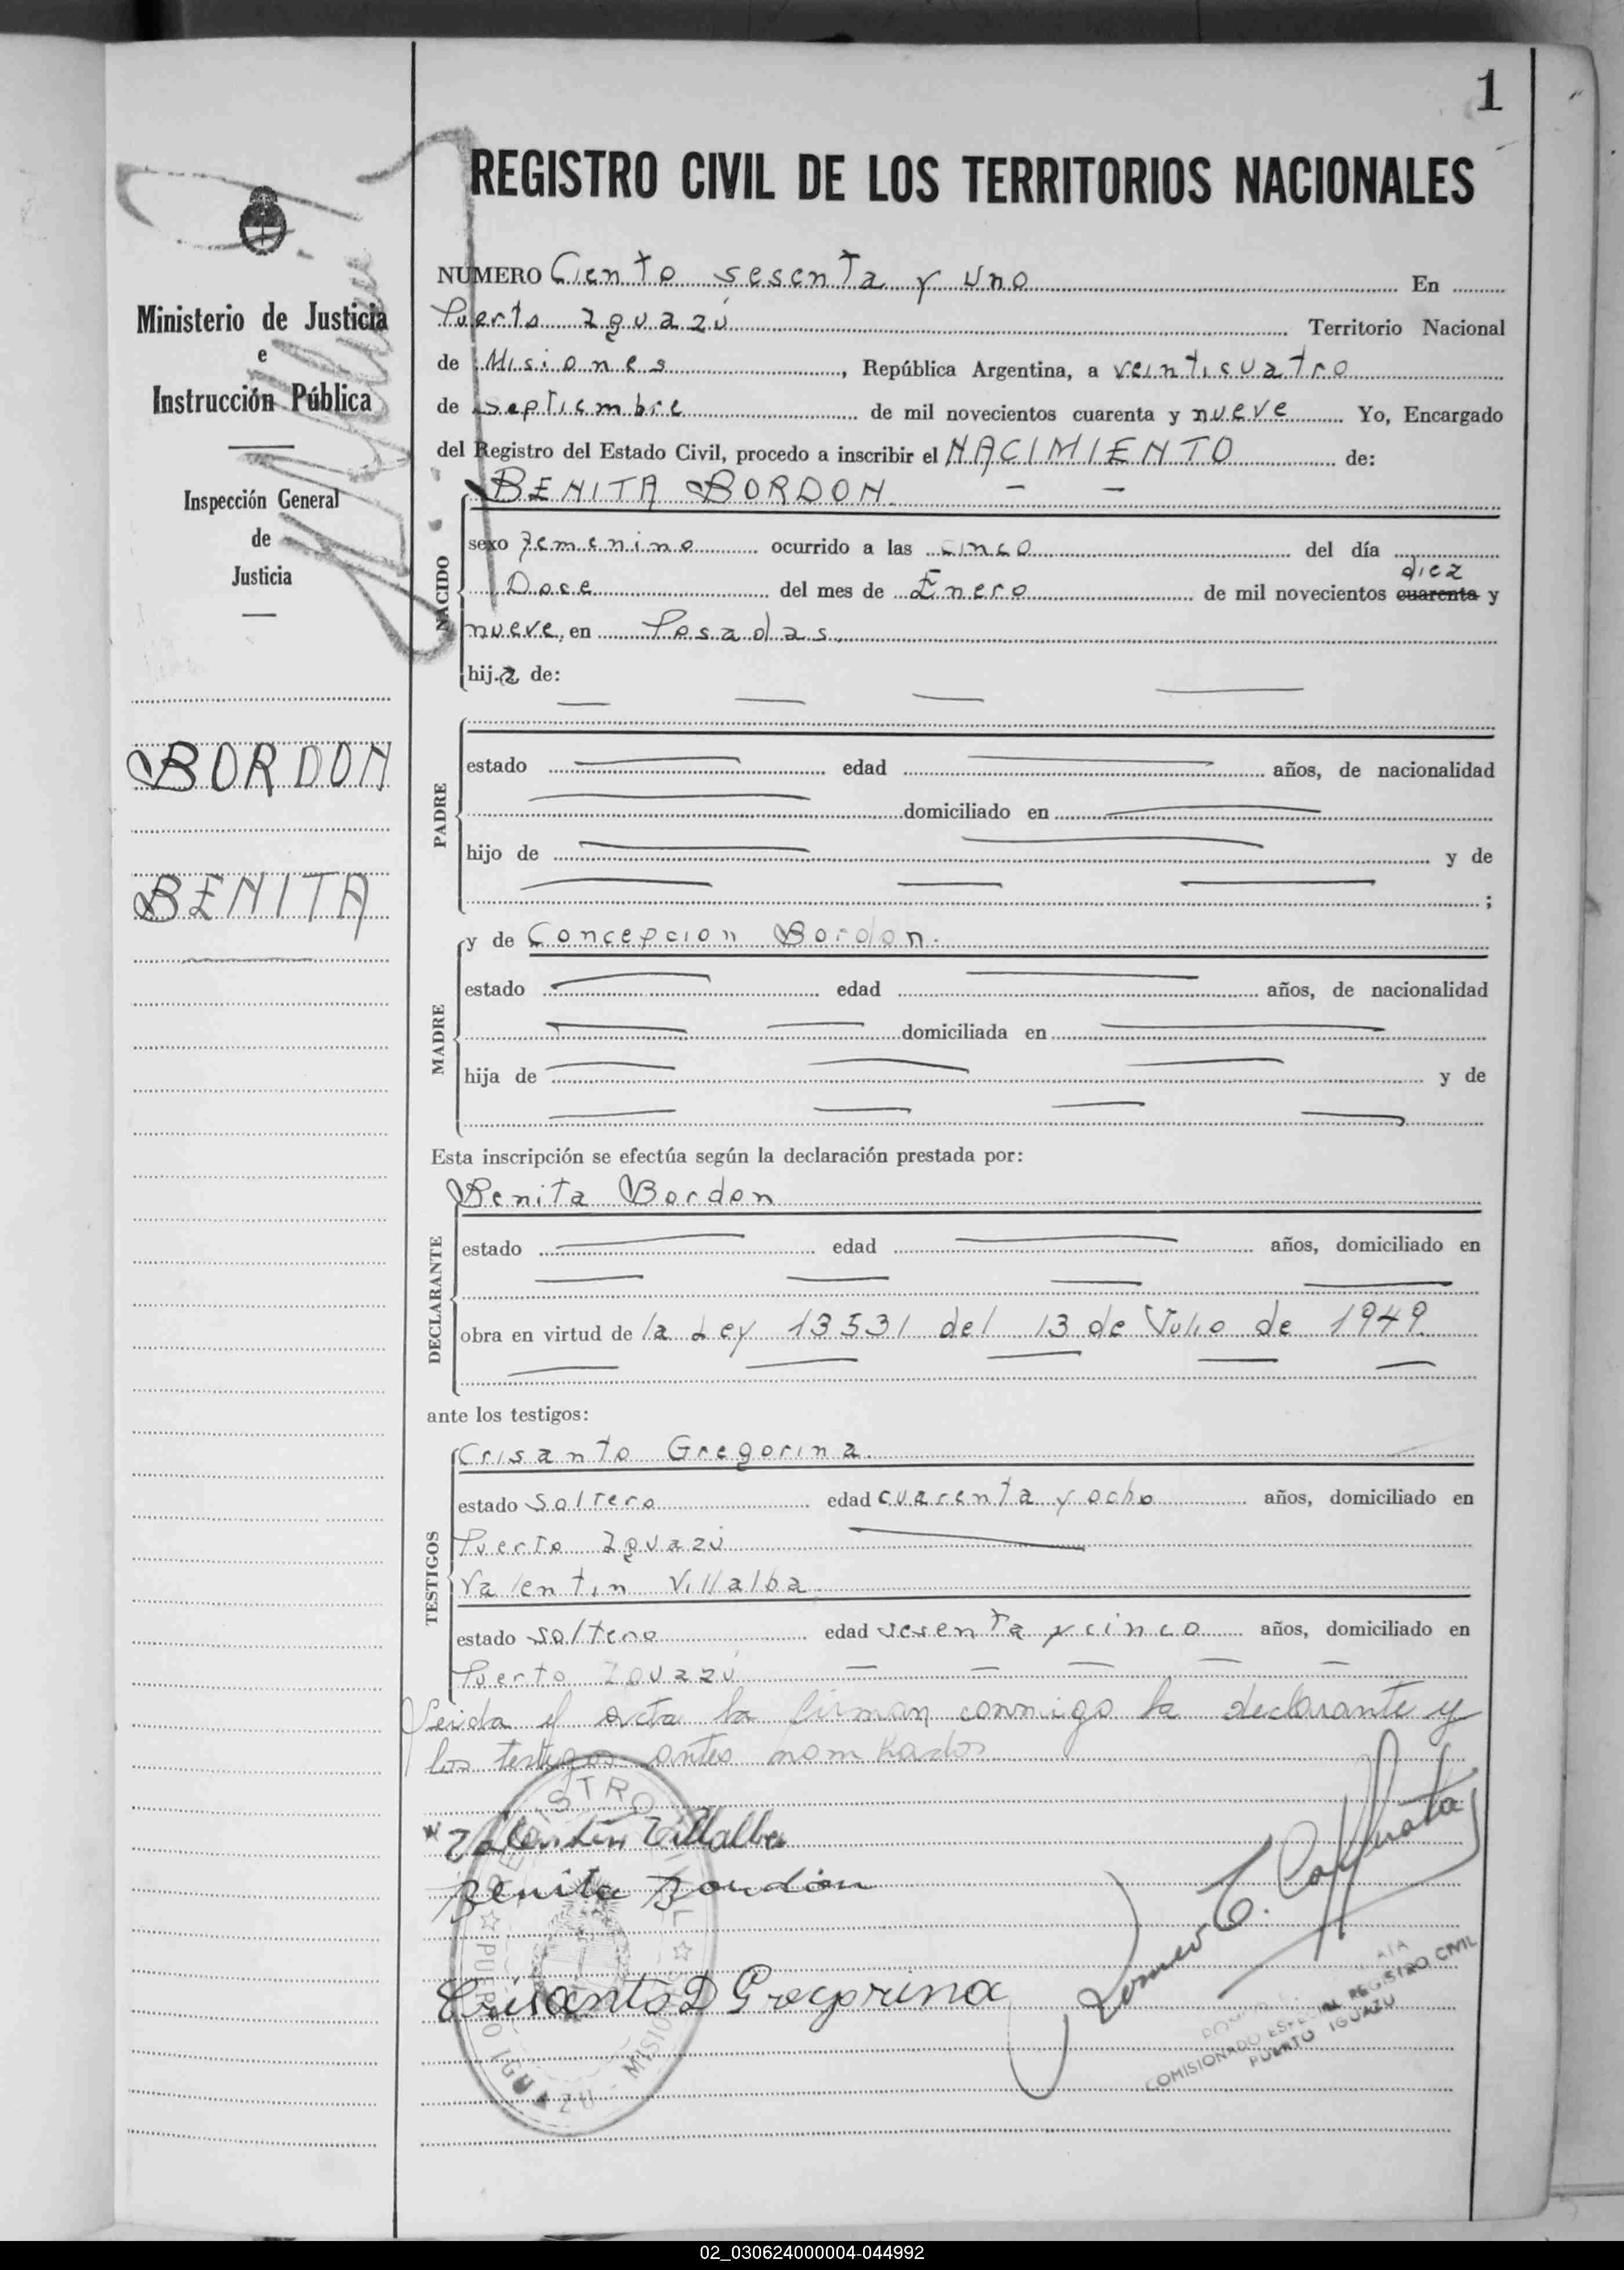 1
REGISTRO CIVIL DE LOS TERRITORIOS NACIONALES
Ministerio de Justicia
e
Instrucción Pública
Inspección General
de
Justicia
BORDON
BENITA
NUMERO Ciento sesenta y uno En
Puerto Iguazú Territorio Nacional
de Misiones, República Argentina, a veinticuatro
de septiembre de mil novecientos cuarenta y nueve Yo, Encargado
del Registro del Estado Civil, procedo a inscribir el NACIMIENTO de:
BENITA BORDON
NACIDO
sexo femenino ocurrido a las cinco del día
diez
Doce del mes de Enero de mil novecientos cuarenta y
nueve, en Posadas.
hija de:
PADRE
estado edad años, de nacionalidad
domiciliado en
hijo de y de
;
MADRE
y de Concepcion Bordon.
estado edad años, de nacionalidad
domiciliada en
hija de y de
Esta inscripción se efectúa según la declaración prestada por:
DECLARANTE
Benita Bordon
estado edad años, domiciliado en
obra en virtud de la Ley 13531 del 13 de Julio de 1949.
ante los testigos:
TESTIGOS
Crisanto Gregorina.
estado soltero edad cuarenta y ocho años, domiciliado en
Puerto Iguazú
Valentin Villalba
estado soltero edad sesenta y cinco años, domiciliado en
Puerto Iguazú
Leida el acta la firman conmigo la declarante y
los testigos antes nombrados
Valentin Villalba
Benita Bordon
Crisanto D Gregorina
Romeo C. Cafferata
REGISTRO CIVIL
PUERTO IGUAZU - MISIONES
COMISIONADO ESPECIAL REGISTRO CIVIL
PUERTO IGUAZU
02_030624000004-044992